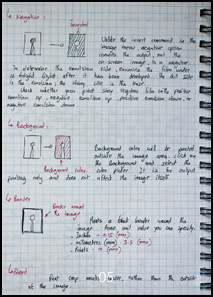 ↳ Negative:
Inverted
Unlike the invert command in the
image menu negative option
converts the output, not the
on-screen image, to a negative.
To determine the emulsion side, examine the film under
a bright light after it has been developed. The dull side
is the emulsion, the shiny side is the base.
Check whether your print shop requires film with positive
emulsion up, negative emulsion up, positive emulsion down, or
negative emulsion down.
↳ Background:
Background color will be printed
outside the image area. click on
the Background and select the
color picker. It is for output
Background color
printing only and does not affect the image itself.
↳ Border
Border around
the image
Prints a black border around the
image. Enter unit value you can specify.
- Inches - 0.15 (max)
- millimetres (mm) - 3.5 (max)
- Points - 10 (max)
05
crop marks rather than the
of the image.